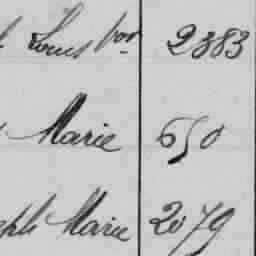 Louis Vor 2383
Marie 650
eph Marie 2079